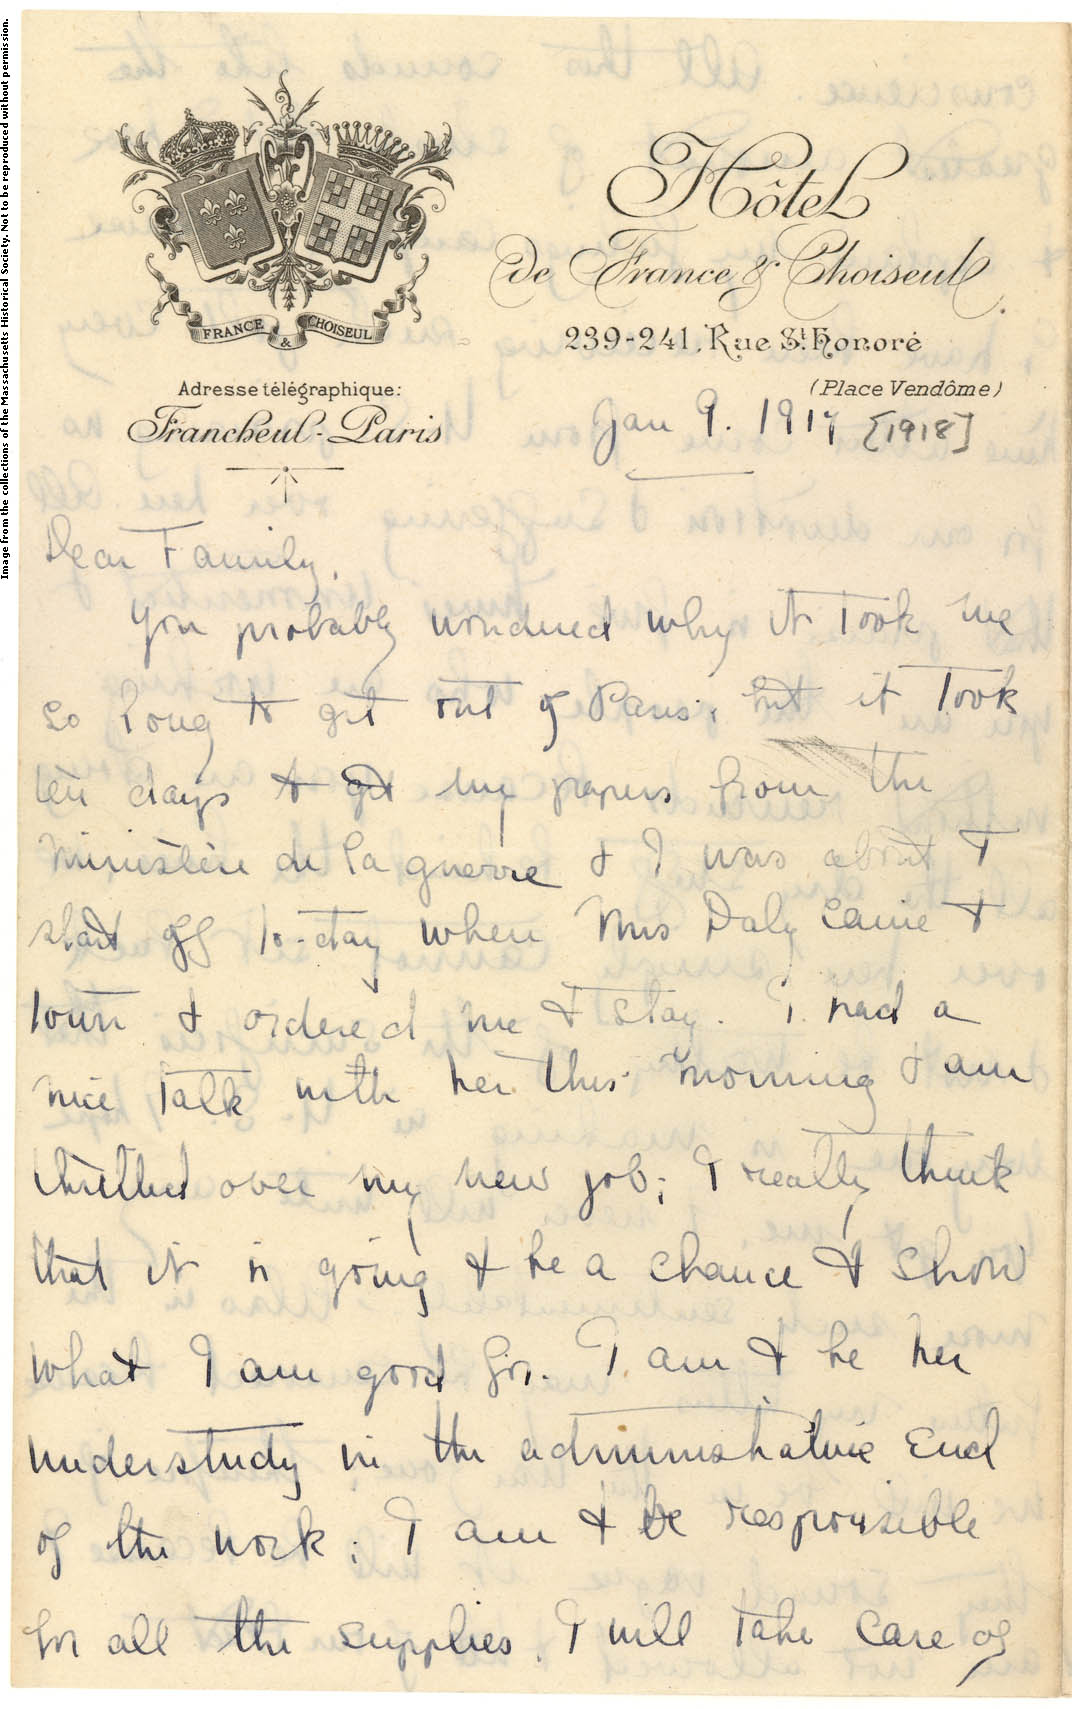 Image from the collections of the Massachusetts Historical Society. Not to be reproduced without permission.
Hôtel
de France & Choiseul
239-241, Rue St. Honoré
(Place Vendôme)
FRANCE & CHOISEUL
Adresse télégraphique:
Francheul-Paris
Jan 9. 1917 [1918]
Dear Family,
You probably wondered why it took me
so long to get out of Paris; but it took
ten days to get my papers from the
Ministère de la guerre & I was about to
start off to-day when Mrs Daly came to
town & ordered me to stay. I had a
nice talk with her this morning & am
thrilled over my new job; I really think
that it is going to be a chance to show
what I am good for. I am to be her
understudy in the administrative end
of the work; I am to be responsible
for all the supplies. I will take care of